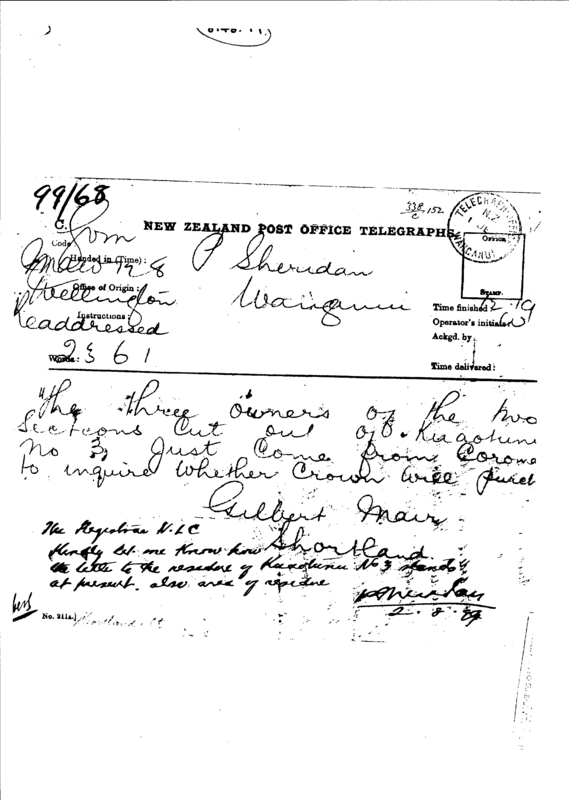 99/68
338/c 152
TELEGRAPH OFFICE
N.Z.
WANGANUI
C.
Govt
NEW ZEALAND POST OFFICE TELEGRAPHS
Code
Handed in (Time) :
P Sheridan
Office of Origin :
Wellington
Wanganui
Office
Stamp.
Instructions :
Readdressed
Time finished 12.19
Operator's initials
Ackgd. by
Words : 23 61
Time delivered :
"The three owners of the two
Sections Cut out of Kuaotunu
No 3, Just Come from Corom
to inquire Whether Crown will purch
Gilbert Mair
Shortland
The Registrar N.L.C
Kindly let me know how
the title to the residue of Kuaotunu No 3 stands
at present. also area of residue
P Sheridan
2. 8. 99
No. 211A.]